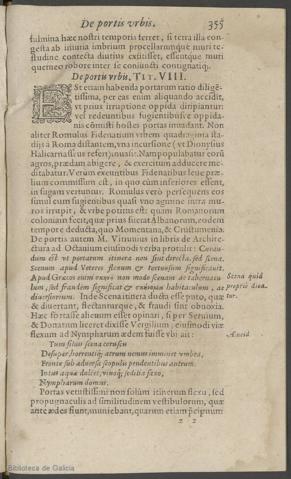 De portis vrbis. 355
fulmina hæc nostri temporis ferret, si terra illa con-
gesta ab iniuria imbrium procellarumque muri te-
studine contecta diutius extitisset, essentque muti
quernei robore inter se coniuncti contignatiq;.
De portis vrbiū, TIT. VIII.
EST etiam habenda portarum ratio diligē-
tissima, per eas enim aliquando accidit,
vt prius irruptione oppida diripiantur:
vel redeuntibus fugientibusve oppida-
nis cōmisti hostes portas inuadant. Non
aliter Romulus Fidenatium vrbem quadraginta sta-
dijs à Roma distantem, vna incursione (vt Dionysius
Halicarnasseus refert) inuasit. Nam populabatur eorū
agros, prædam abigere, & exercitum adducere me-
ditabatur. Verùm exeuntibus Fidenatibus leue præ-
lium commissum est, in quo cùm inferiores essent,
in fugam vertuntur. Romulus verò persequens eos
simul cum fugientibus quasi vno agmine intra mu-
ros irrupit, & vrbe potitus est: quam Romanorum
coloniam fecit, quæ prius fuerat Albanorum, eodem
tempore deducta, quo Momentana, & Crustumenia.
De portis autem M. Vitruuius in libris de Archite-
ctura ad Octauium eiusmodi verba protulit: Curan-
dum est vt portarum itinera non sint directa, sed scæna.
Scenam apud Veteres flexum & tortuosum significauit.
Apud Græcos enim σκηνὴ non modo scenam ac tabernacu-
lum, sed fraudem significat & habitaculum, ac
diuersorium. Inde Scena itinera ducta esse puto, quæ
& diuertant, flectanturque, & fraudi sint obnoxia.
Hæc fortasse alienum esset opinari, si per Seruium,
& Donatum liceret dixisse Vergilium, eiusmodi viæ
flexum ad Nympharum ædem fuisse vbi ait:
Scena quid
propriè dica-
tur.
Æneid.
Tum siluis scena coruscis
Desuper, horrentiq; atrum nemus imminet vmbra,
Fronte sub aduersa scopulis pendentibus antrum.
Intus aquæ dulces, viuoq; sedilia saxo,
Nympharum domus.
Portas vetustissimi non solùm itinerum flexu, sed
propugnaculis ad similitudinem vestibulorum, quæ
ante ædes fiunt, muniebant, quarum etiam præcipuum
z 2
Biblioteca de Galicia